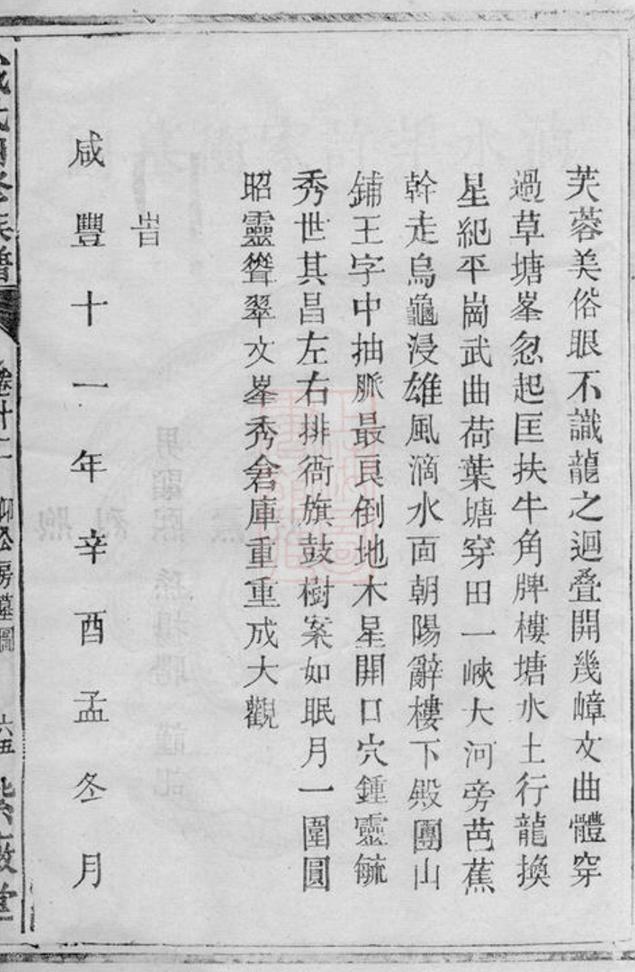 芙蓉美俗眼不識龍之迴疊開幾嶂文曲體穿
過草塘峯忽起匡扶牛角牌樓塘水土行龍換
星紀平崗武曲荷葉塘穿田一峽大河旁芭蕉
幹走烏龜浸雄風滴水面朝陽辭樓下殿團山
鋪王字中抽脈最良倒地木星開口穴鍾靈毓
秀世其昌左右排衙旗鼓樹案如眠月一圍圓
昭靈聳翠文峯秀倉庫重重成大觀
旹
咸豐十一年辛酉孟冬月
氏四修族譜
卷廿二
房墓圖
六五
敬堂